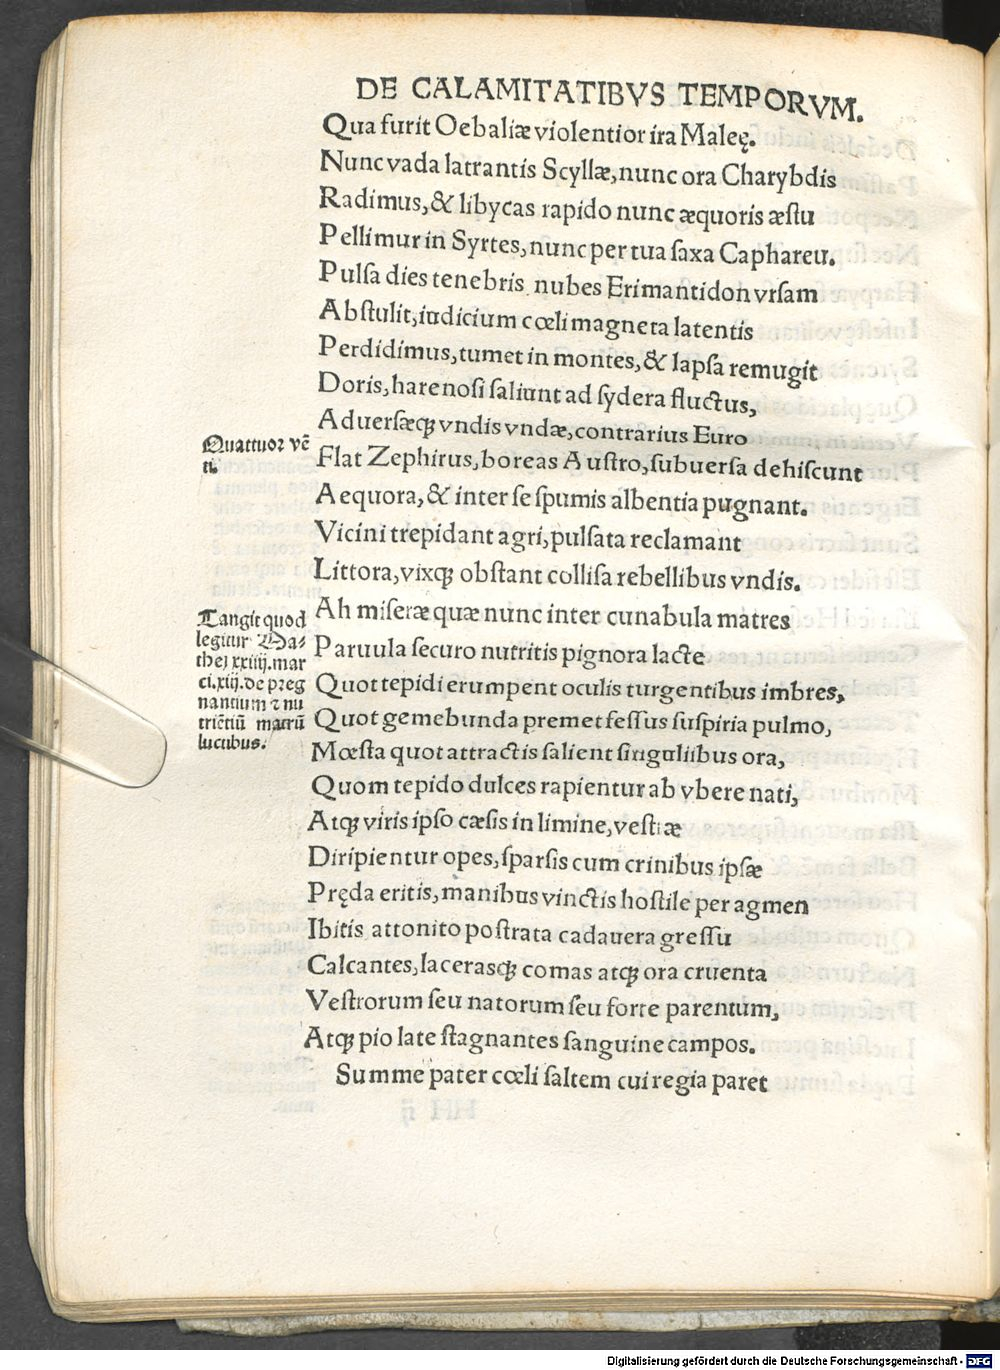 DE CALAMITATIBVS TEMPORVM.
Qua furit Oebaliæ violentior ira Maleę.
Nunc vada latrantis Scyllæ, nunc ora Charybdis
Radimus, & libycas rapido nunc æquoris æstu
Pellimur in Syrtes, nunc per tua saxa Caphareu.
Pulsa dies tenebris nubes Erimantidon vrsam
Abstulit, iudicium cœli magneta latentis
Perdidimus, tumet in montes, & lapsa remugit
Doris, harenosi saliunt ad sydera fluctus,
Aduersæqꝫ vndis vndæ, contrarius Euro
Quattuor vē
ti.
Flat Zephirus, boreas Austro, subuersa dehiscunt
Aequora, & inter se spumis albentia pugnant.
Vicini trepidant agri, pulsata reclamant
Littora, vixqꝫ obstant collisa rebellibus vndis.
Ah miseræ quæ nunc inter cunabula matres
Tangit quod
legitur Ma-
thei xxiiij. mar
ci. xiij. de preg
nantium ⁊ nu
triētiū matrū
luctibus.
Paruula securo nutritis pignora lacte
Quot tepidi erumpent oculis turgentibus imbres,
Quot gemebunda premet fessus suspiria pulmo,
Mœsta quot attractis salient singultibus ora,
Quom tepido dulces rapientur ab vbere nati,
Atqꝫ viris ipso cæsis in limine, vestræ
Diripientur opes, sparsis cum crinibus ipsæ
Pręda eritis, manibus vinctis hostile per agmen
Ibitis attonito postrata cadauera gressu
Calcantes, lacerasqꝫ comas atqꝫ ora cruenta
Vestrorum seu natorum seu forte parentum,
Atqꝫ pio late stagnantes sanguine campos.
Summe pater cœli saltem cui regia paret
Digitalisierung gefördert durch die Deutsche Forschungsgemeinschaft - DFG